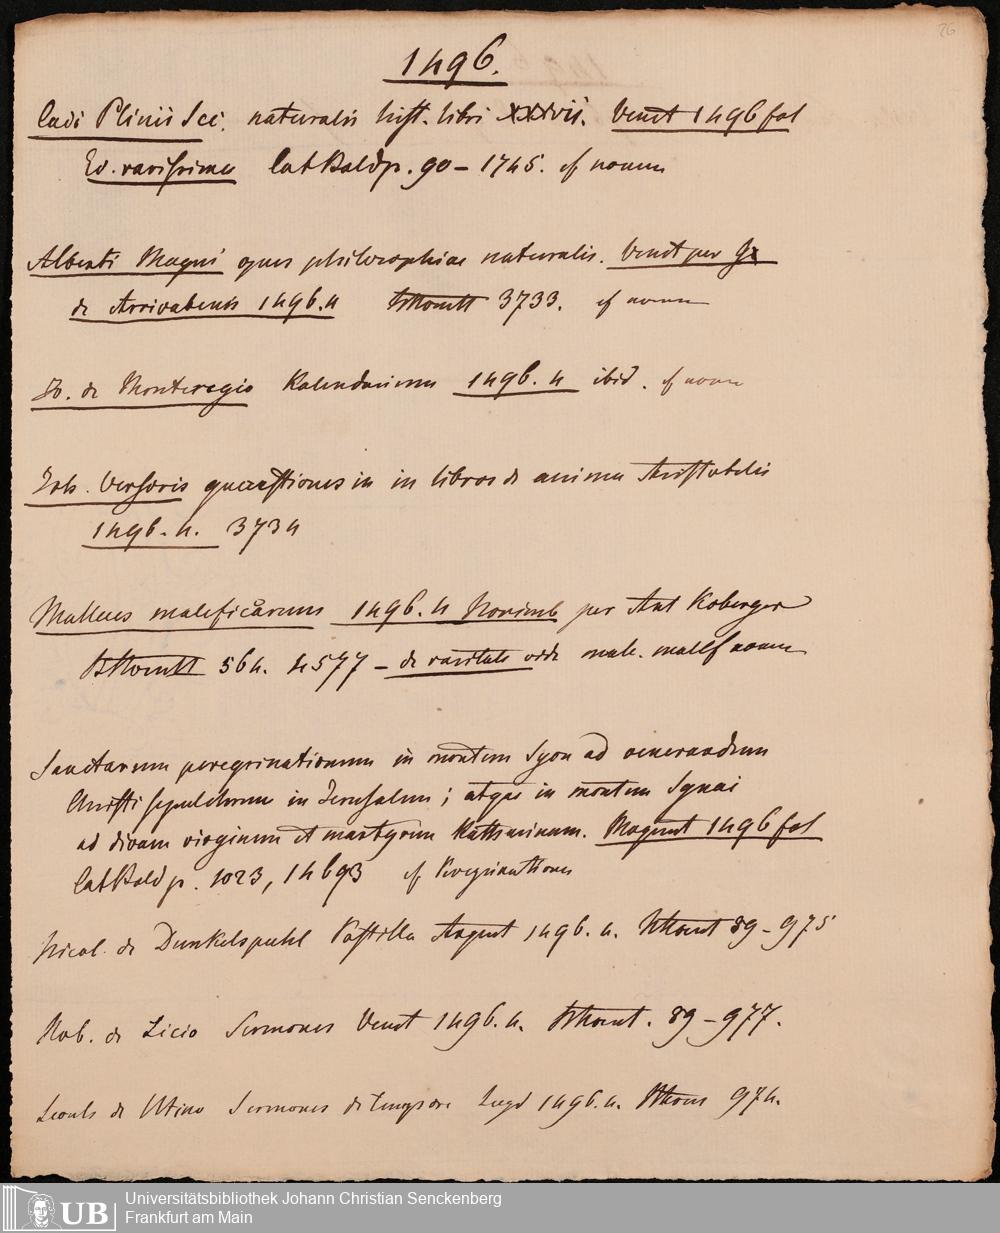 26
1496.
Caii Plinii Sec. naturalis hist. libri XXXVII. Venet 1496 fol
Ed. rarissima Cat Bald p. 90 – 1745. cf nomen
Alberti Magni opus philosophiae naturalis. Venet per
de Arrivabenis 1496. 4 3733. cf nomen
Jo. de Monteregio Kalendarium 1496. 4 ibid. cf nomen
Joh. Versoris quaestiones in in libros de anima Aristotelis
1496. 4. 3734
Malleus maleficarum 1496. 4 Norimb per Ant Koberger
564. 4577 – de raritate male. mall cf nomen
Sanctarum peregrinationum in montem Syon ad venerandum
Christi sepulchrum in Jerusalem; atque in montem Synai
ad divam virginem et martyrem Katherinam. Mogunt 1496 fol
Cat Bald p. 1023, 14693 cf Peregrinationes
Nicol. de Dunkelspuhl Postilla August 1496. 4. 89 – 975
Rob. de Licio Sermones Venet 1496. 4. 89 – 977.
Leonh de Utino Sermones de tempore Lugd 1496. 4. 974.
UB
Universitätsbibliothek Johann Christian Senckenberg
Frankfurt am Main